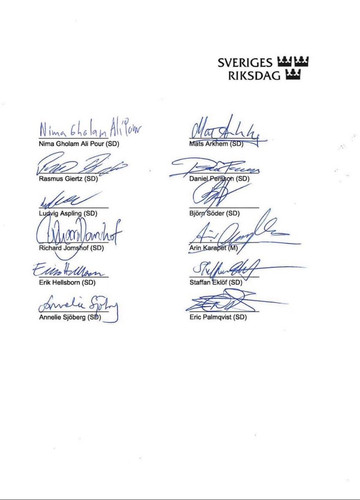 SVERIGES
RIKSDAG
Nima Gholam Ali Pour
Mats Arkhem
Nima Gholam Ali Pour (SD)
Mats Arkhem (SD)
Rasmus Giertz (SD)
Daniel Persson (SD)
Ludvig Aspling (SD)
Björn Söder (SD)
Richard Jomshof
Richard Jomshof (SD)
Arin Karapet (M)
Erik Hellsborn
Staffan Eklöf
Erik Hellsborn (SD)
Staffan Eklöf (SD)
Annelie Sjöberg
Annelie Sjöberg (SD)
Eric Palmqvist (SD)